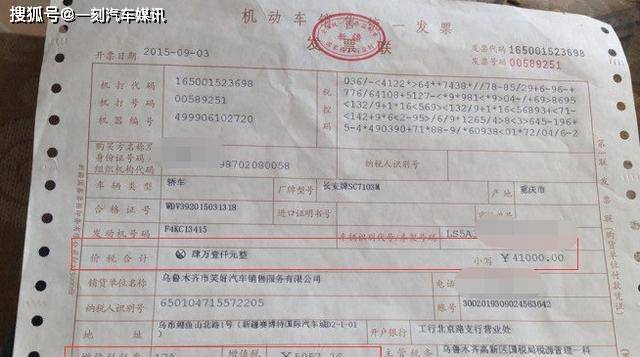 搜狐号@一刻汽车媒讯
机动车销售统一发票
发票联
开票日期 2015-09-03
发票代码 165001523698
发票号码 00589251
机打代码 165001523698
机打号码 00589251
机器编号 499906102720
税控码
036/-<4122*>64**7438*//78-85/29+6-96-+
776/64108+5127-<*9*981<*9>04-/+69>8695
<132/9+1*16<569><132/9+1*16<56893+<71-
<142+9*6<2-95>/6/9*1265/4>8<3>645-196+
5-4*490390+71*88-9/*60938<01*72/04/6-2
购买方名称
身份证号码
组织机构代码
98702080058
纳税人识别号
车辆类型 轿车 厂牌型号 长安牌SC7103M 产地 重庆市
合格证号 WDV392015031318 进口证明书号
发动机号码 F4KC13415 车辆识别代号/车架号码 LS5A
价税合计 ⊗ 肆万壹仟元整 小写 ¥41000.00
销货单位名称 乌鲁木齐市笑好汽车销售服务有限公司 电话
纳税人识别号 650104715572205 账号 3002019309024563642
地址 乌市鲤鱼山北路1号(新疆赛博特国际汽车城D2-1-01) 开户银行 工行北京港支行营业处
增值税税率 17% 增值税 ¥5957.26 主管税务 乌鲁木齐高新区国税局税源管理一科
第一联 发票联(购货单位付款凭证)